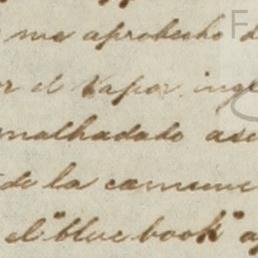 me aprobecho d
r el vapor ingl
malhadado asu
de la comune
el "blue book" a